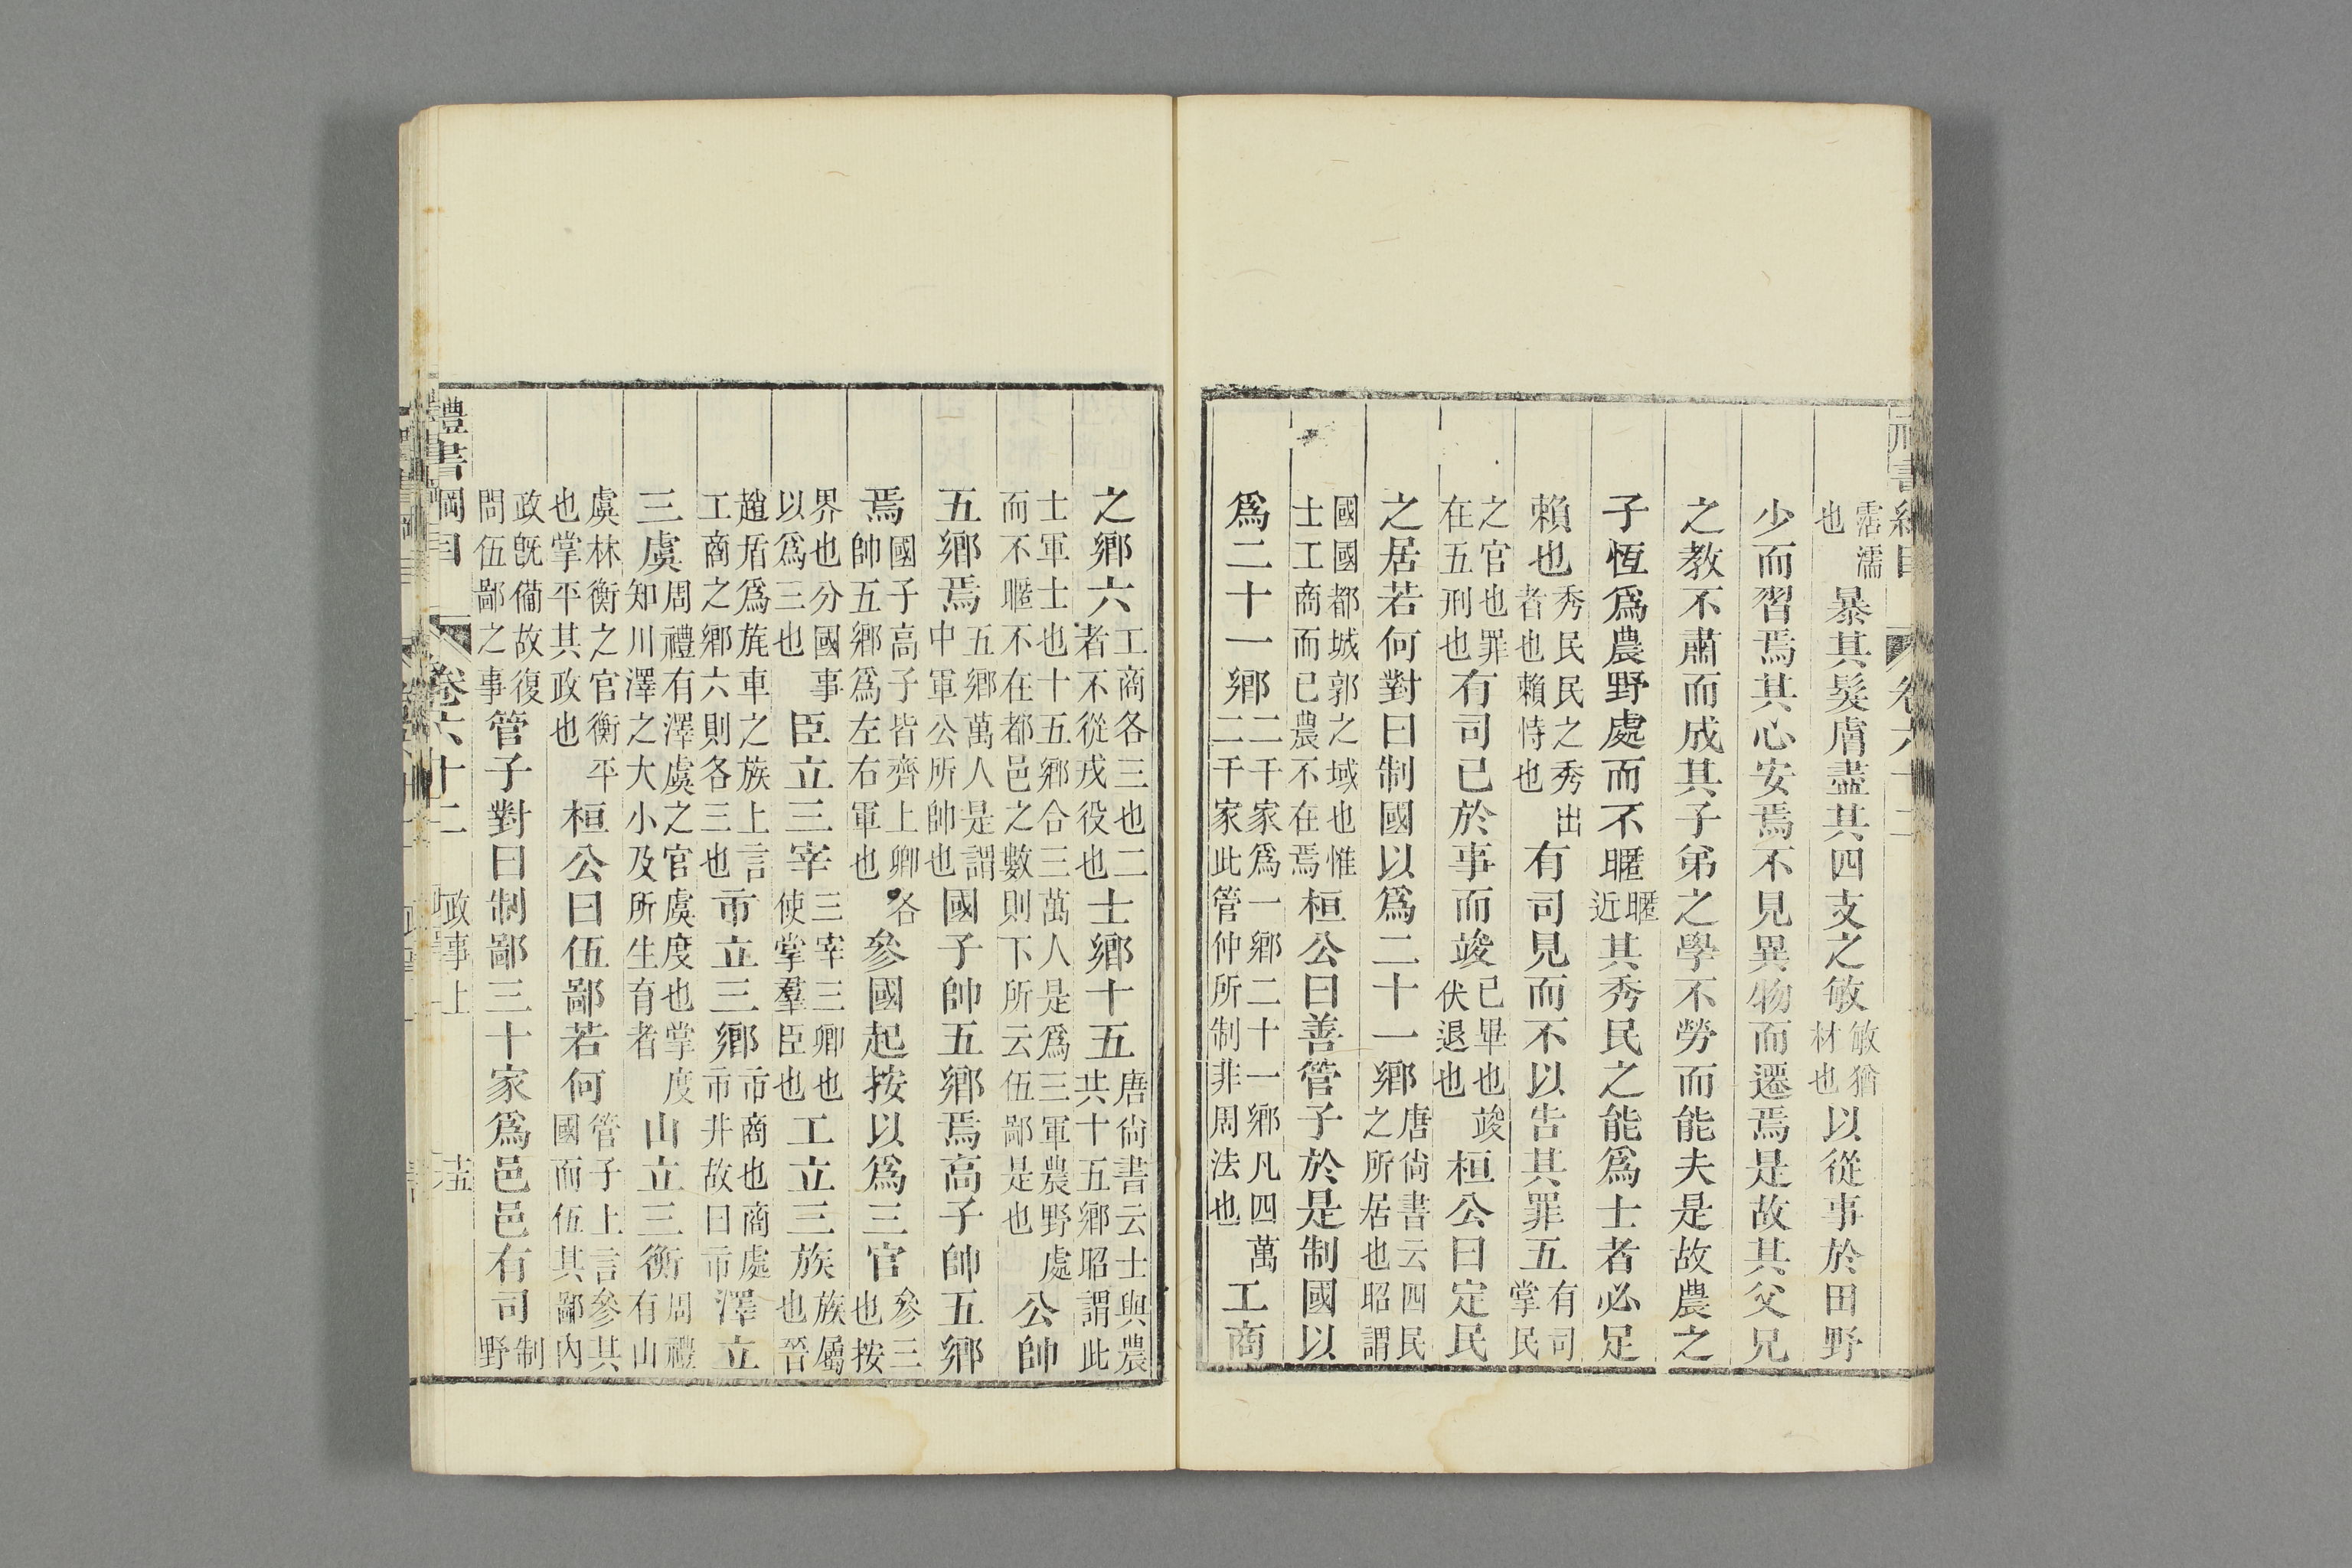 霑濡也暴其髮膚盡其四支之敏敏猶材也以從事於田野
少而習焉其心安焉不見異物而遷焉是故其父兄
之教不肅而成其子弟之學不勞而能夫是故農之
子恆爲農野處而不暱暱近其秀民之能爲士者必足
賴也秀民民之秀出者也賴恃也有司見而不以告其罪五有司掌民
之官也罪在五刑也有司已於事而竣已畢也竣伏退也桓公曰定民
之居若何對曰制國以爲二十一鄉唐尙書云四民之所居也昭謂
國國都城郭之域也惟士工商而已農不在焉桓公曰善管子於是制國以
爲二十一鄉二千家爲一鄉二十一鄉凡四萬二千家此管仲所制非周法也工商
之鄉六工商各三也二者不從戎役也士鄉十五唐尙書云士與農共十五鄉昭謂此
士軍士也十五鄉合三萬人是爲三軍農野處而不暱不在都邑之數則下所云伍鄙是也公帥
五鄉焉五鄉萬人是謂中軍公所帥也國子帥五鄉焉高子帥五鄉
焉國子高子皆齊上卿各帥五鄉爲左右軍也參國起按以爲三官參三也按
界也分國事以爲三也臣立三宰三宰三卿也使掌羣臣也工立三族族屬也晉
趙盾爲旄車之族上言工商之鄉六則各三也市立三鄉市商也商處市井故曰市澤立
三虞周禮有澤虞之官虞度也掌度知川澤之大小及所生育者山立三衡周禮有山
虞林衡之官衡平也掌平其政也桓公曰伍鄙若何管子上言參其國而伍其鄙內
政旣備故復問伍鄙之事管子對曰制鄙三十家爲邑邑有司制野
禮書綱目 卷六十二 政事上 十五